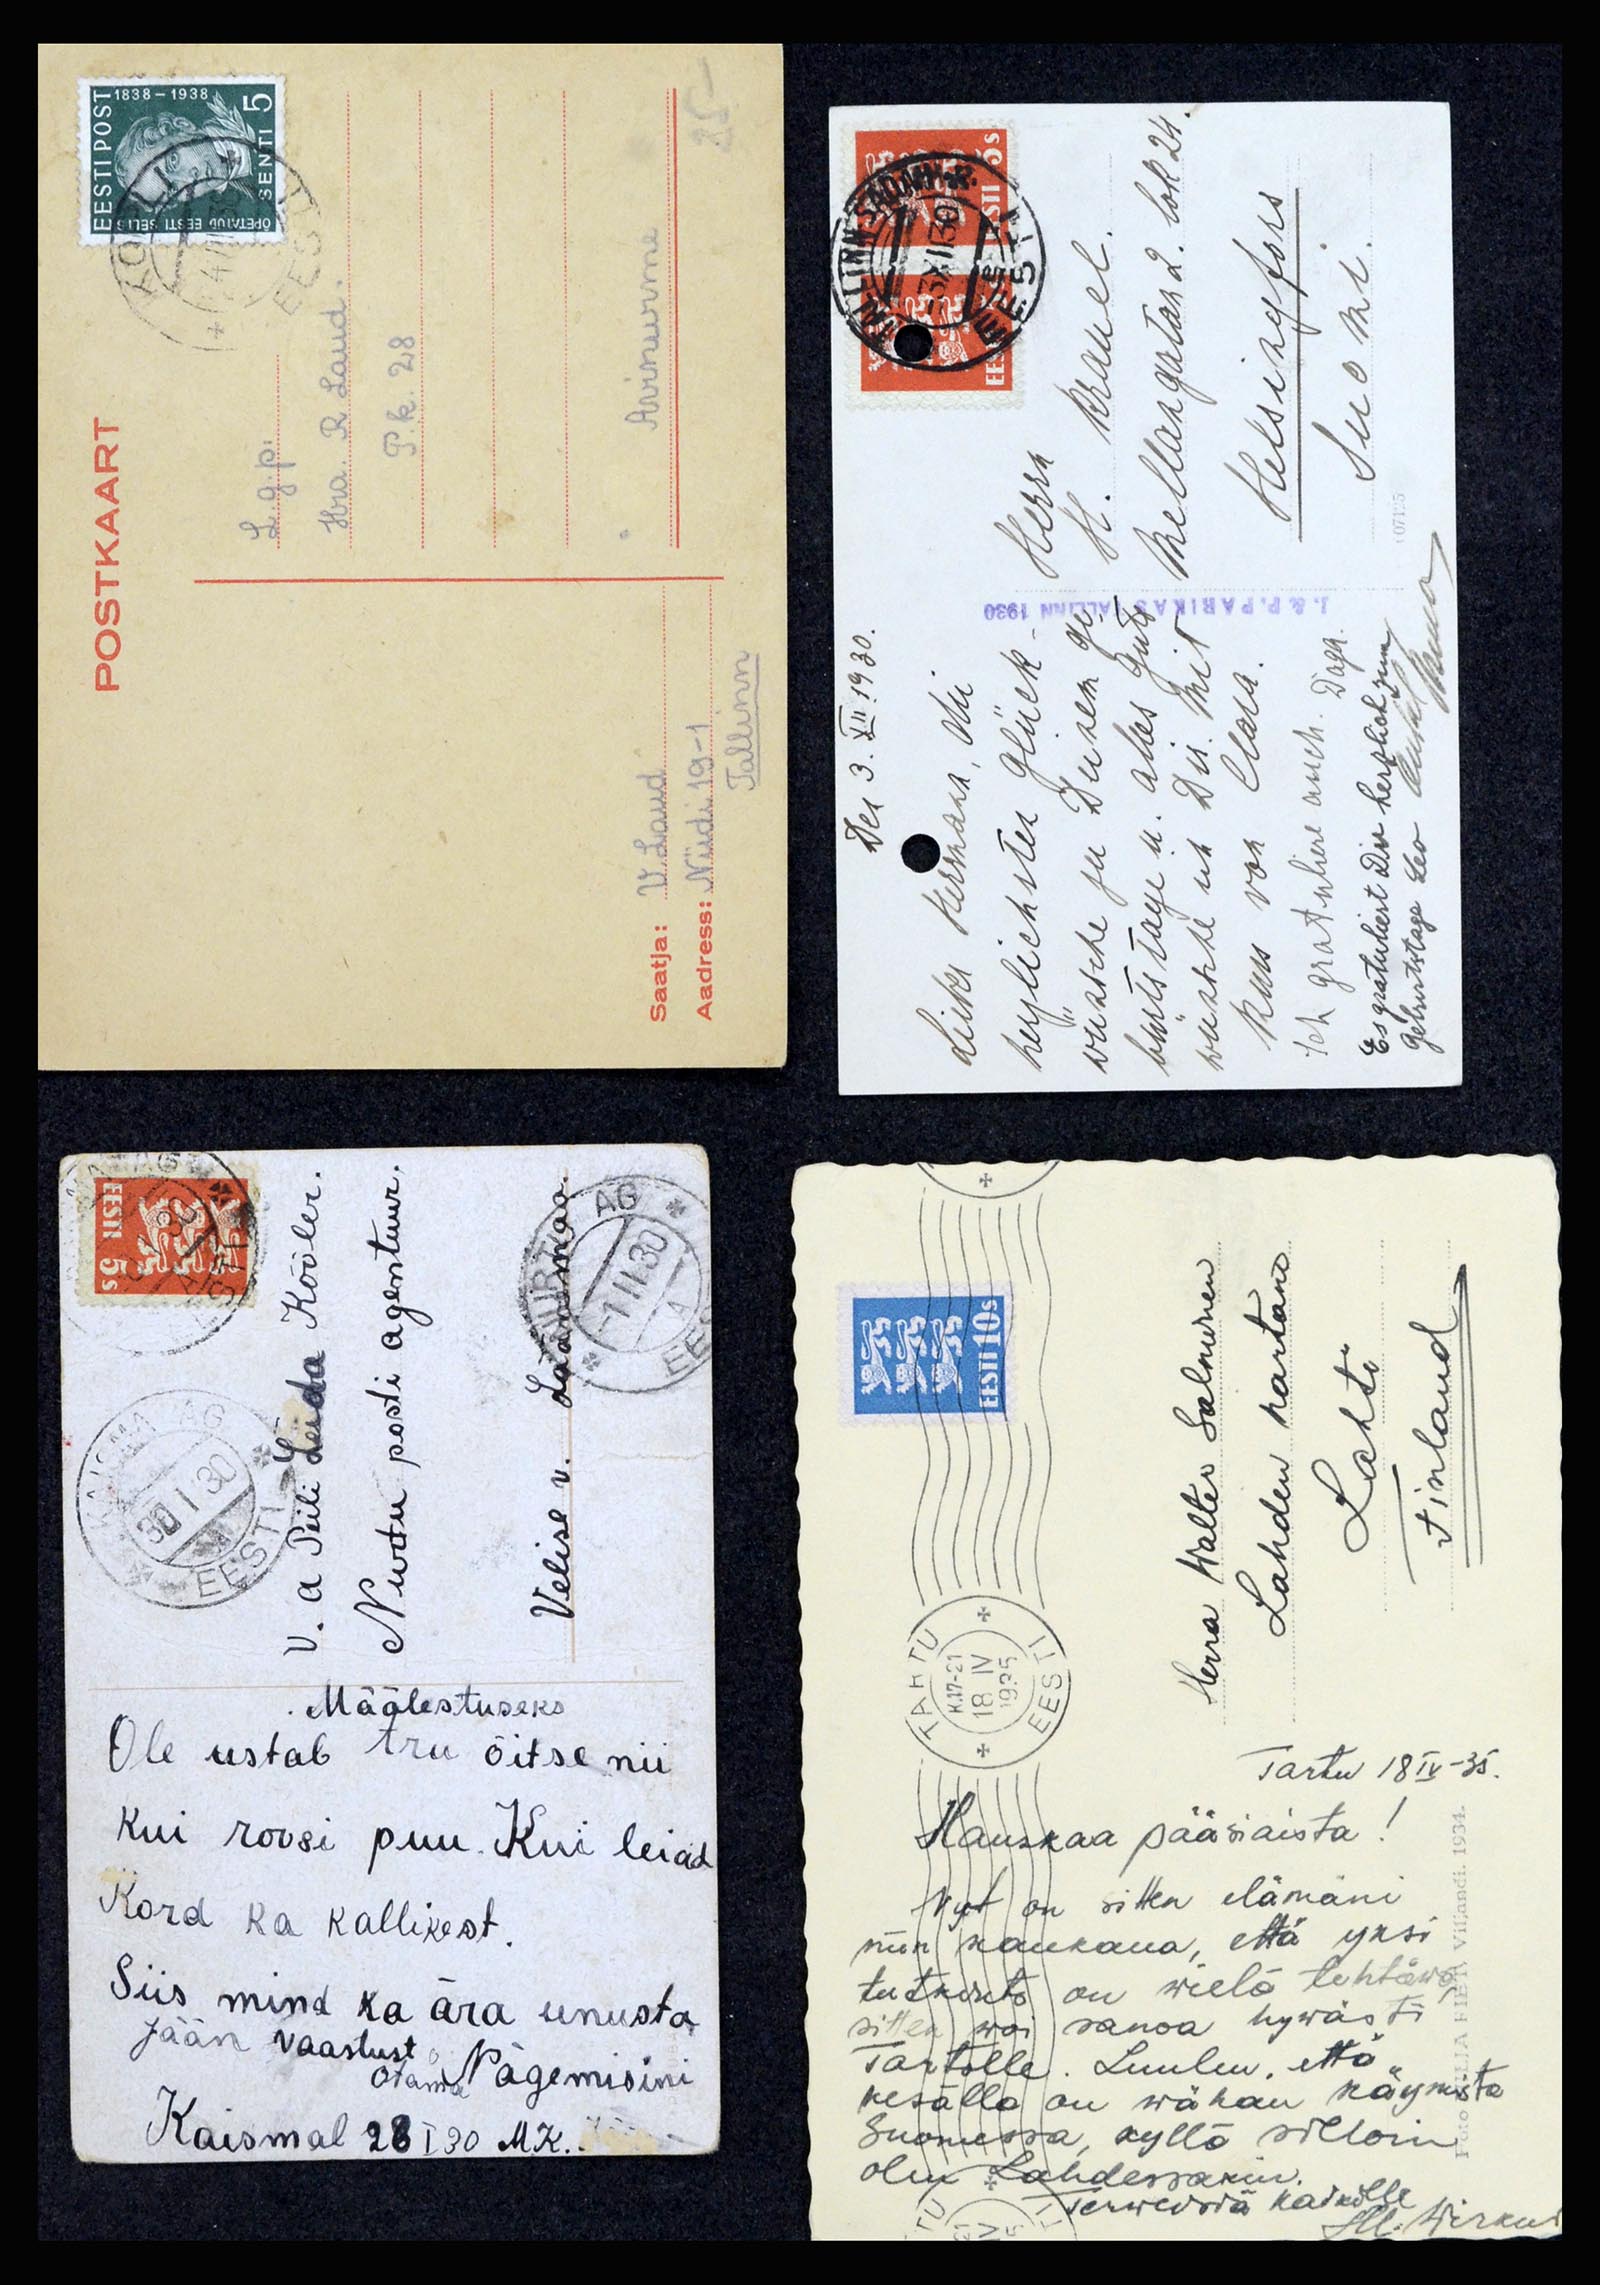 EESTI POST
1838 – 1938
5
SENTI
ÕPETATUD EESTI SELTS
EESTI
POSTKAART
L.g.p.
Hra. R Laud.
P.k. 28
Avinurme
25-
Saatja: V. Laud
Aadress: Niidi 19-1
Tallinn
EESTI 5s
EESTI
TALLINN-SADAM
-3 XII 30
EESTI
Herrn
H. Krauel.
Mellangatan 2. lok 24.
Helsingfors
Suomi.
107125
J. & P. PARIKAS TALLINN 1930
Den 3. XII 1930.
Lieber Hermann, die
herzlichsten Glück-
wünsche zu Deinem Ge-
burtstage u. alles Gute
wünsche ich Dir. Mit
Kuss von Clara.
Ich gratuliere auch. Dagn.
Es gratuliert Dir herzlich zum
Geburtstage Leo
EESTI 5s
AG
30
KAISMA AG
30 I 30
A
EESTI
AG
-1 II 30
A
EESTI
V. a Preili Leida Kööler.
Nurtu posti agentuur.
Velise v. Läänemaa.
Määlestuseks
Ole ustab tru õitse nii
Kui roosi puu. Kui leiad
Kord ka kallikest.
Siis mind ka ära unusta
Jään vaastust
otama Nägemisini
Kaismal 28 I 30 M.K.
EESTI 10s
TARTU
K.17-21
18 IV
1935
EESTI
Herra Walter Salminen
Lahden kartano
Lahti
Finland
Tartu 18 IV -35.
Hauskaa pääsiäistä!
Nyt on sitten elämäni
niin kaukana, että yksi
tutkinto on vielä tehtävä,
sitten voi sanoa hywästi
Tartolle. Luulen, että
kesällä on wähän käymistä
Suomessa, kyllä silloin
olen Lahdessakin.
Terweisiä kaikille
Foto JULIA RIET, Viljandi. 1934.